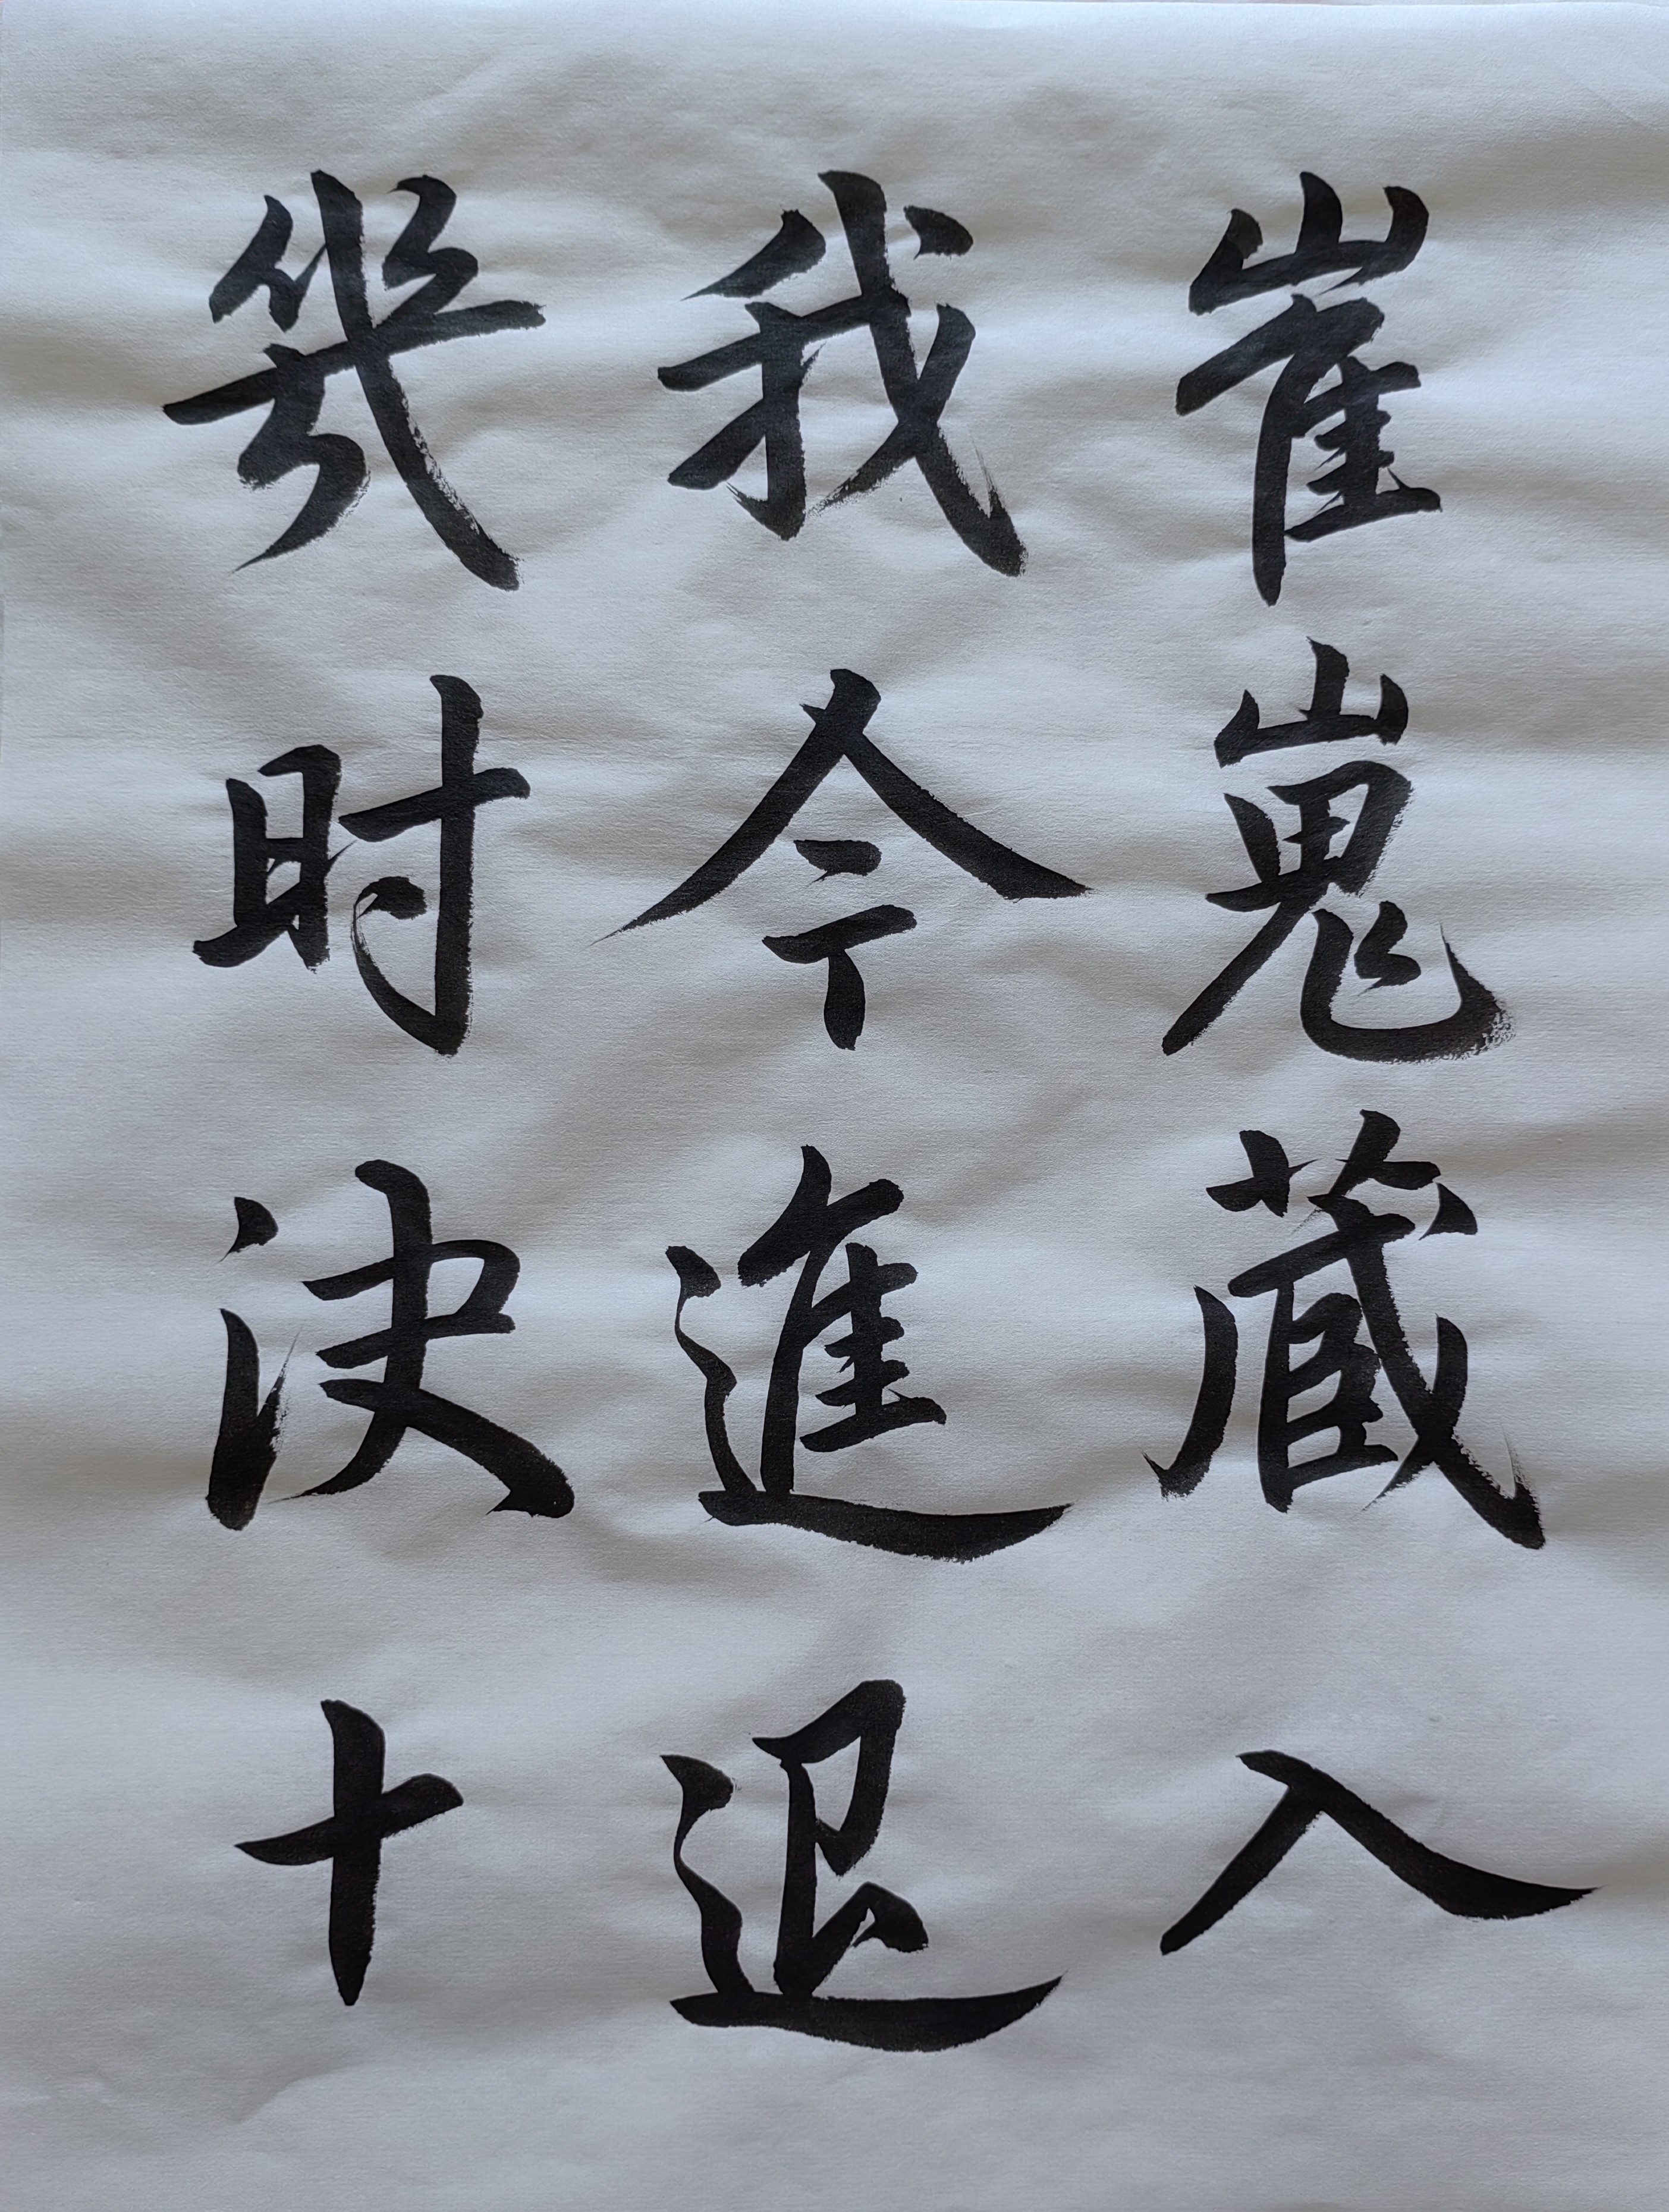 崔嵬蔵入
我今進退
幾时決十